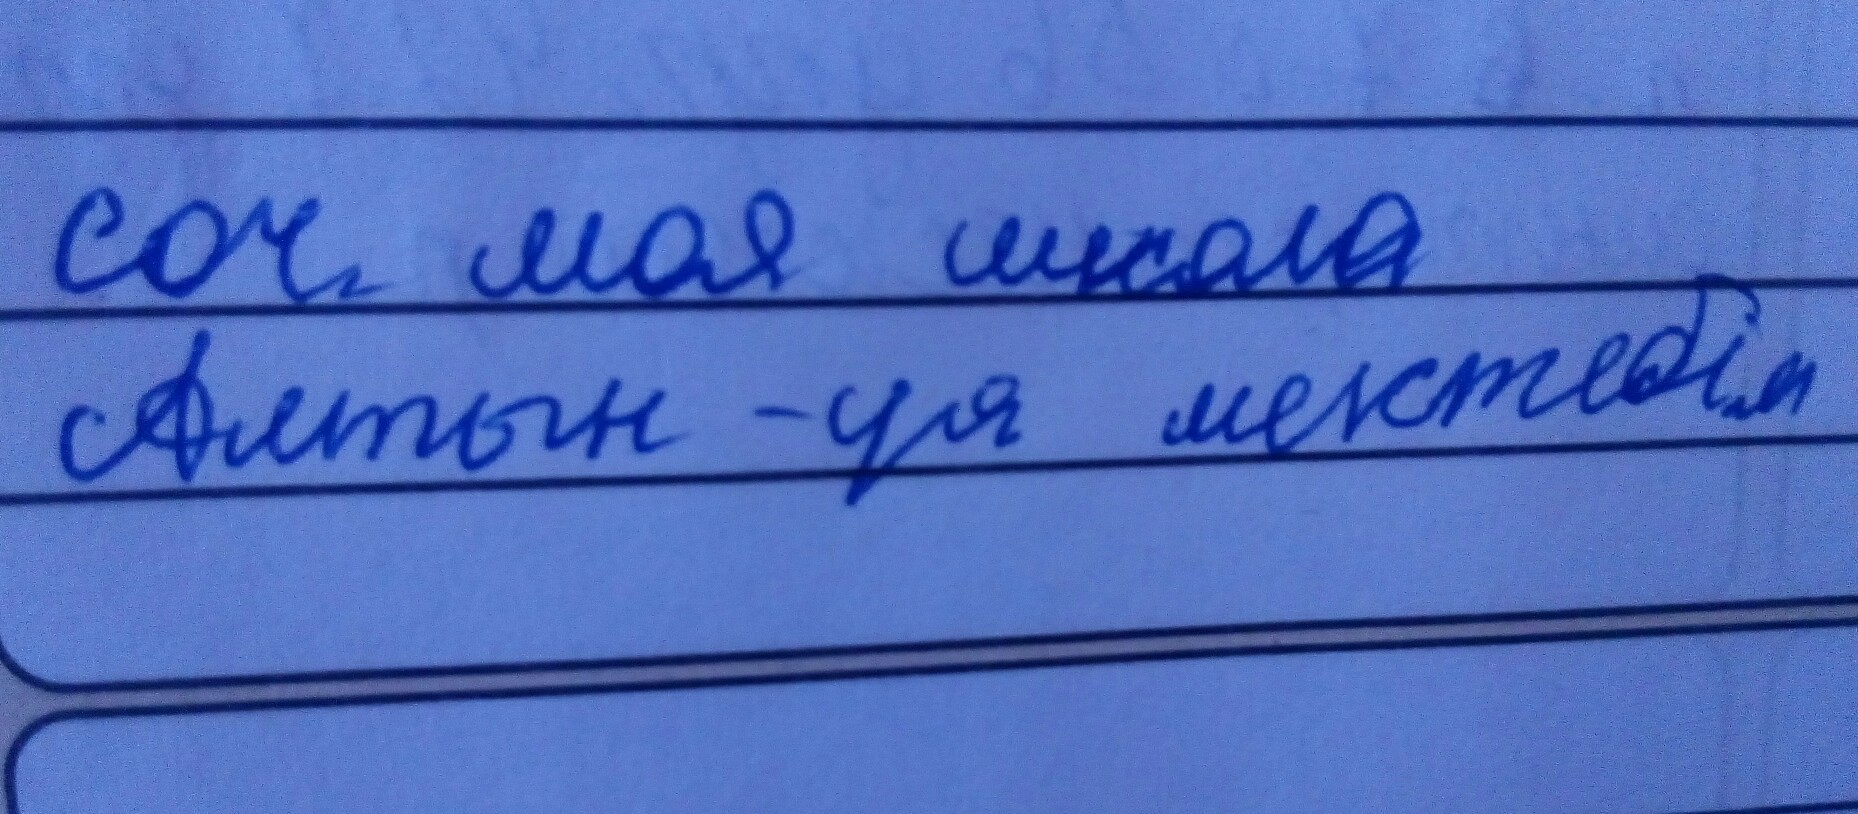 соч. моя школа
Алтын - ұя мектебім